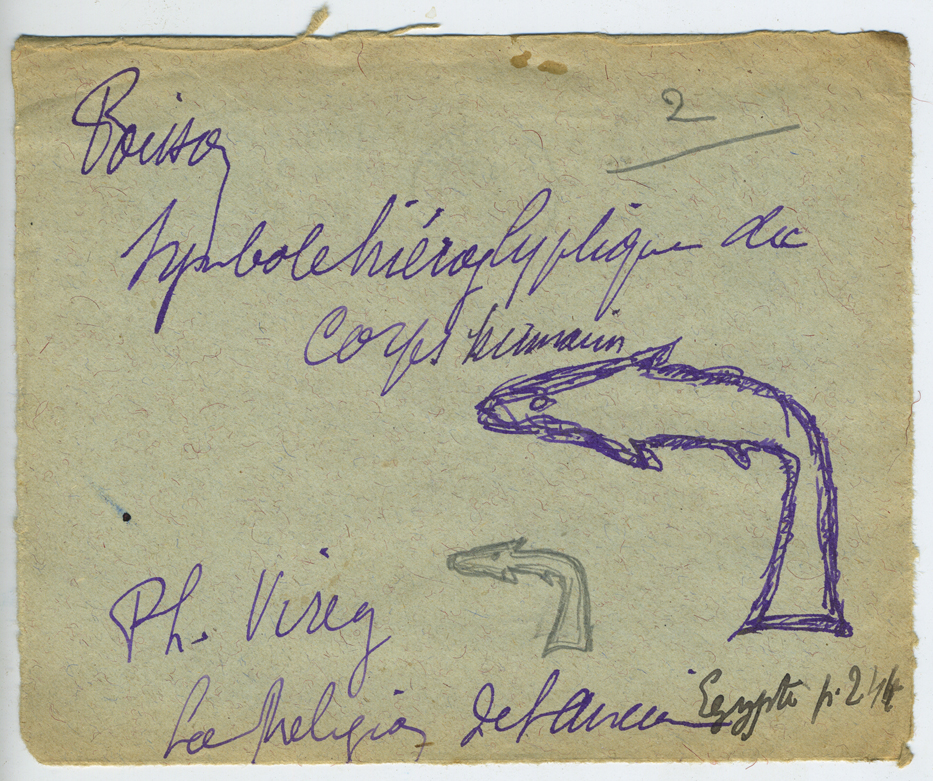 2
Poisson
Symbole hiéroglyphique du
Corps humain
Ph. Virey
La Religion de l'ancienne Egypte p. 244